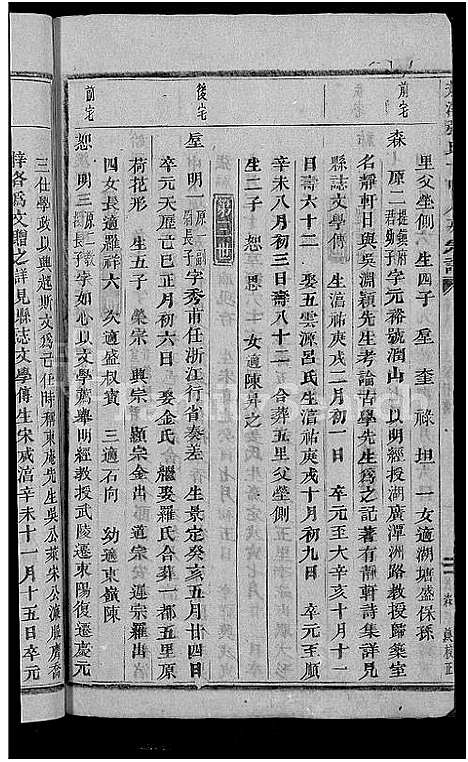 里父塋側 生四子 垕 奎 祿 坦 一女適湖塘盛保孫
前宅
森 原二 提鎮府君幼子 字元裕號潤山 以明經授湖廣潭洲路教授歸築室
名靜軒日與吳淵穎先生考論古學先生為之記著有靜軒詩集詳見
縣誌文學傳 生淳祐庚戌二月初一日 卒元至大辛亥十月十一
日壽六十二 娶五雲源呂氏生淳祐庚戌十月初九日 卒元至順
辛未八月初三日壽八十二 合葬五里父塋側
生二子 恕 惪 一女適陳昇之
後宅
垕 明一 原一府君長子 字秀甫任浙江行省奏差 生景定癸亥五月廿四日
卒元天歷己巳正月六日 娶金氏 繼娶羅氏合葬一都五里原
荷花形 生五子 榮宗 典宗 顯宗金出 道宗 運宗羅出
四女長適羅祥六 次適盛叔寶 三適石向 幼適東嶺陳
前宅
恕 明三 原二府君長子 字如心以文學薦舉明經教授武陵遷東陽復遷慶元
三仕學政以興起斯文為己任時釋東庵先生吳公萊宋公濂胡慶香
梓各為文贈之詳見縣誌文學傳生宋咸淳辛未十一月十五日卒元